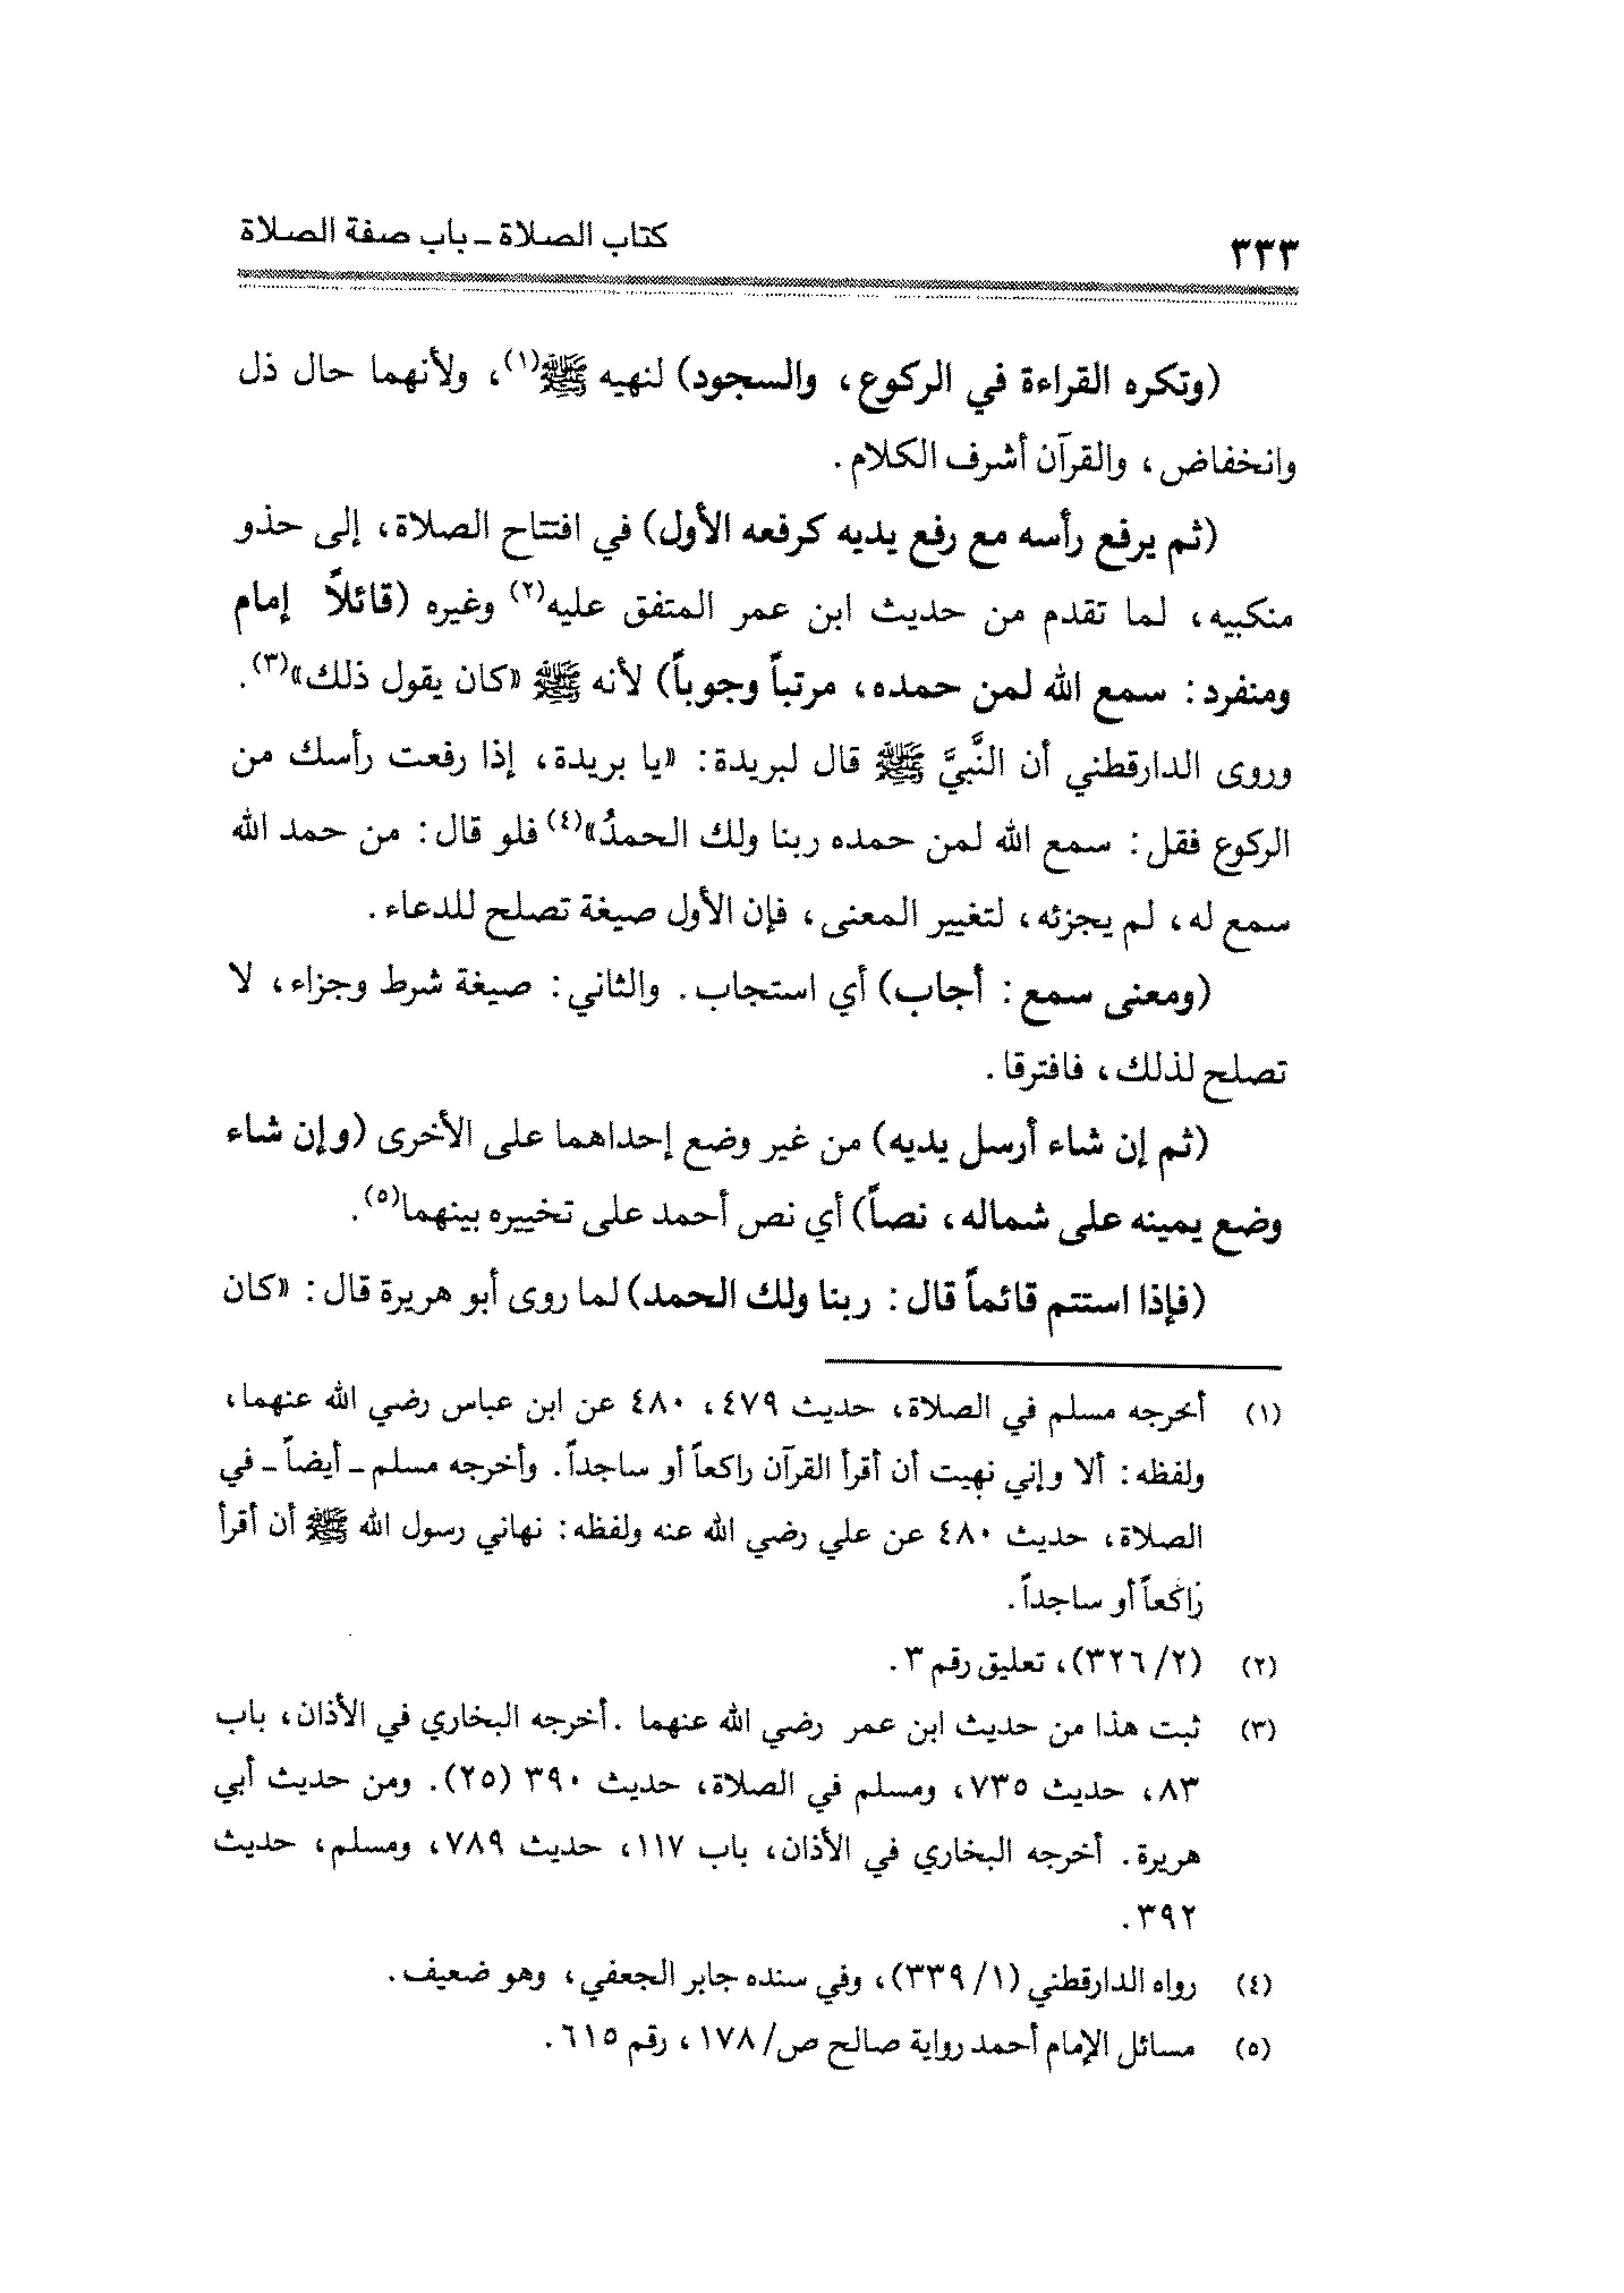 ٣٣٣
كتاب الصلاة ـ باب صفة الصلاة
(وتكره القراءة في الركوع، والسجود) لنهيه ﷺ(١)، ولأنهما حال ذل
وانخفاض، والقرآن أشرف الكلام.
(ثم يرفع رأسه مع رفع يديه كرفعه الأول) في افتتاح الصلاة، إلى حذو
منكبيه، لما تقدم من حديث ابن عمر المتفق عليه(٢) وغيره (قائلاً إمام
ومنفرد: سمع الله لمن حمده، مرتباً وجوباً) لأنه ﷺ «كان يقول ذلك»(٣).
وروى الدارقطني أن النَّبيَّ ﷺ قال لبريدة: «يا بريدة، إذا رفعت رأسك من
الركوع فقل: سمع الله لمن حمده ربنا ولك الحمدُ»(٤) فلو قال: من حمد الله
سمع له، لم يجزئه، لتغيير المعنى، فإن الأول صيغة تصلح للدعاء.
(ومعنى سمع: أجاب) أي استجاب. والثاني: صيغة شرط وجزاء، لا
تصلح لذلك، فافترقا.
(ثم إن شاء أرسل يديه) من غير وضع إحداهما على الأخرى (وإن شاء
وضع يمينه على شماله، نصاً) أي نص أحمد على تخييره بينهما(٥).
(فإذا استتم قائماً قال: ربنا ولك الحمد) لما روى أبو هريرة قال: «كان
(١) أخرجه مسلم في الصلاة، حديث ٤٧٩، ٤٨٠ عن ابن عباس رضي الله عنهما،
ولفظه: ألا وإني نهيت أن أقرأ القرآن راكعاً أو ساجداً. وأخرجه مسلم ـ أيضاً ـ في
الصلاة، حديث ٤٨٠ عن علي رضي الله عنه ولفظه: نهاني رسول الله ﷺ أن أقرأ
راكعاً أو ساجداً.
(٢) (٢/ ٣٢٦)، تعليق رقم ٣.
(٣) ثبت هذا من حديث ابن عمر رضي الله عنهما .أخرجه البخاري في الأذان، باب
٨٣، حديث ٧٣٥، ومسلم في الصلاة، حديث ٣٩٠ (٢٥). ومن حديث أبي
هريرة. أخرجه البخاري في الأذان، باب ١١٧، حديث ٧٨٩، ومسلم، حديث
٣٩٢.
(٤) رواه الدارقطني (١/ ٣٣٩)، وفي سنده جابر الجعفي، وهو ضعيف.
(٥) مسائل الإمام أحمد رواية صالح ص/ ١٧٨، رقم ٦١٥.